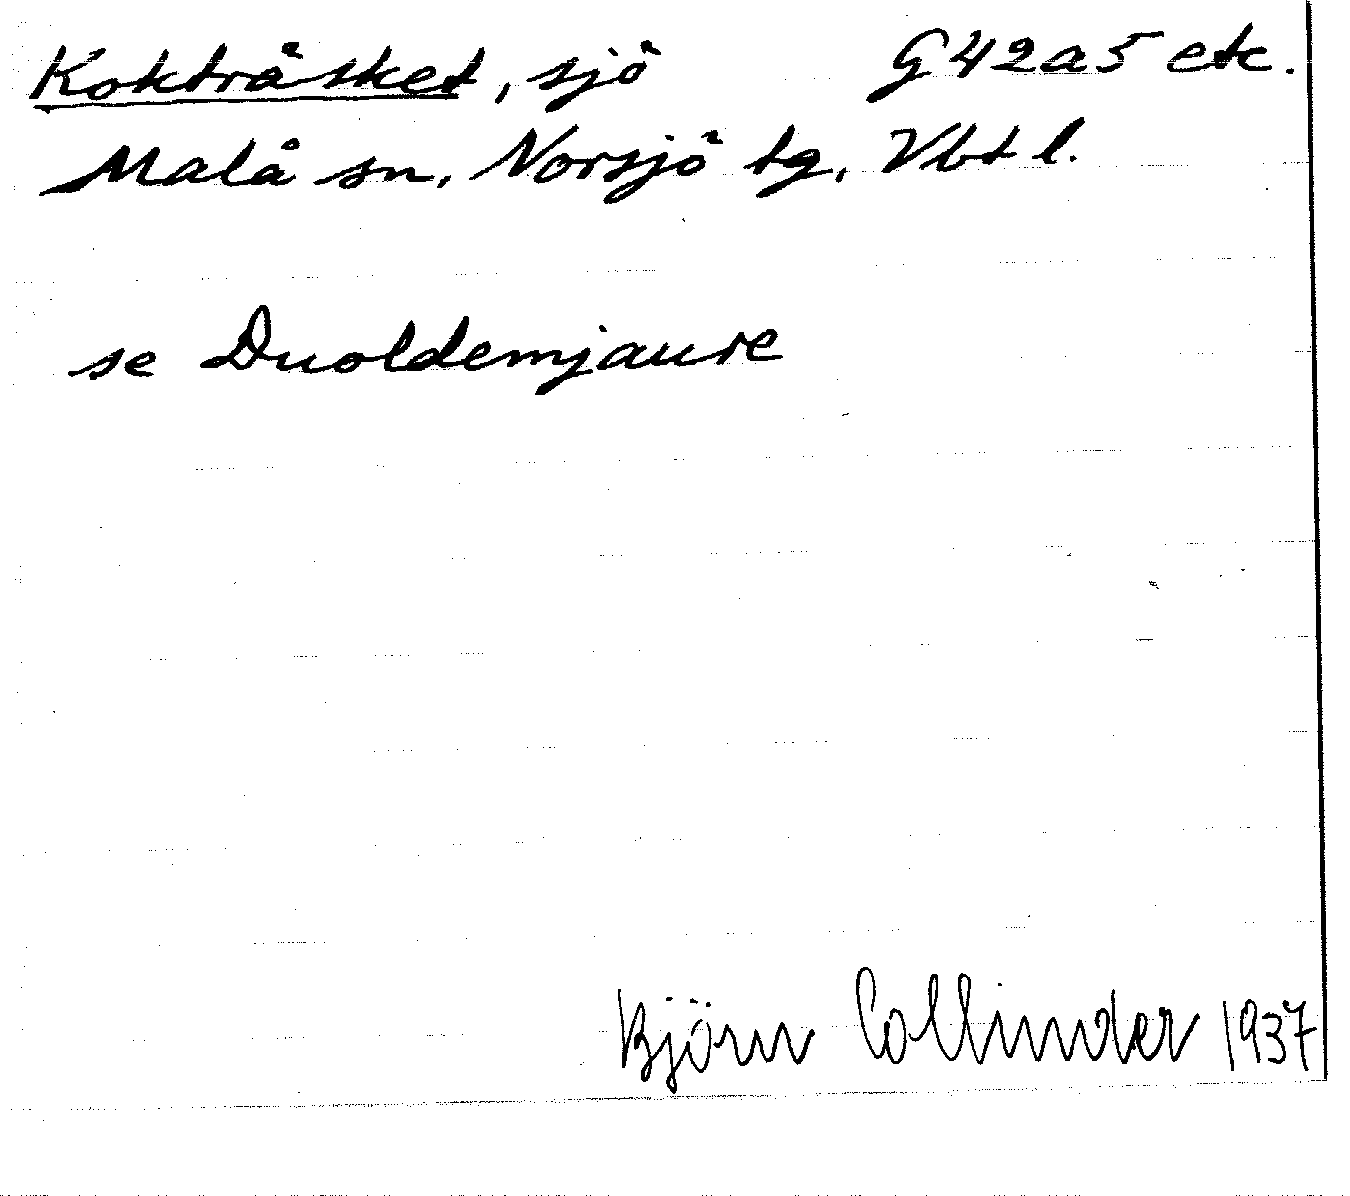 Kokträsket, sjö G42a5 etc.
Malå sn, Norsjö tg, Vbt l.
se Duoldemjaure
Björn Collinder 1937